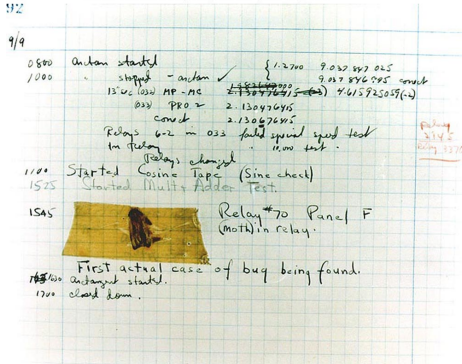 92
9/9
0800 antan started
1000 " stopped - antan ✓ { 1.2700 9.037 847 025
9.037 846 995 correct
13"uc (032) MP-MC 2.130476415 (-3) 4.615925059(-2)
(033) PRO 2 2.130476415
correct 2.130676415
Relays 6-2 in 033 failed special speed test
in relay 10,000 test.
Relays changed
Relay
2145
Relay 3370
1100 Started Cosine Tape (Sine check)
1525 Started Mult+Adder Test.
1545 Relay #70 Panel F
(Moth) in relay.
First actual case of bug being found.
1630 antangent started.
1700 closed down.